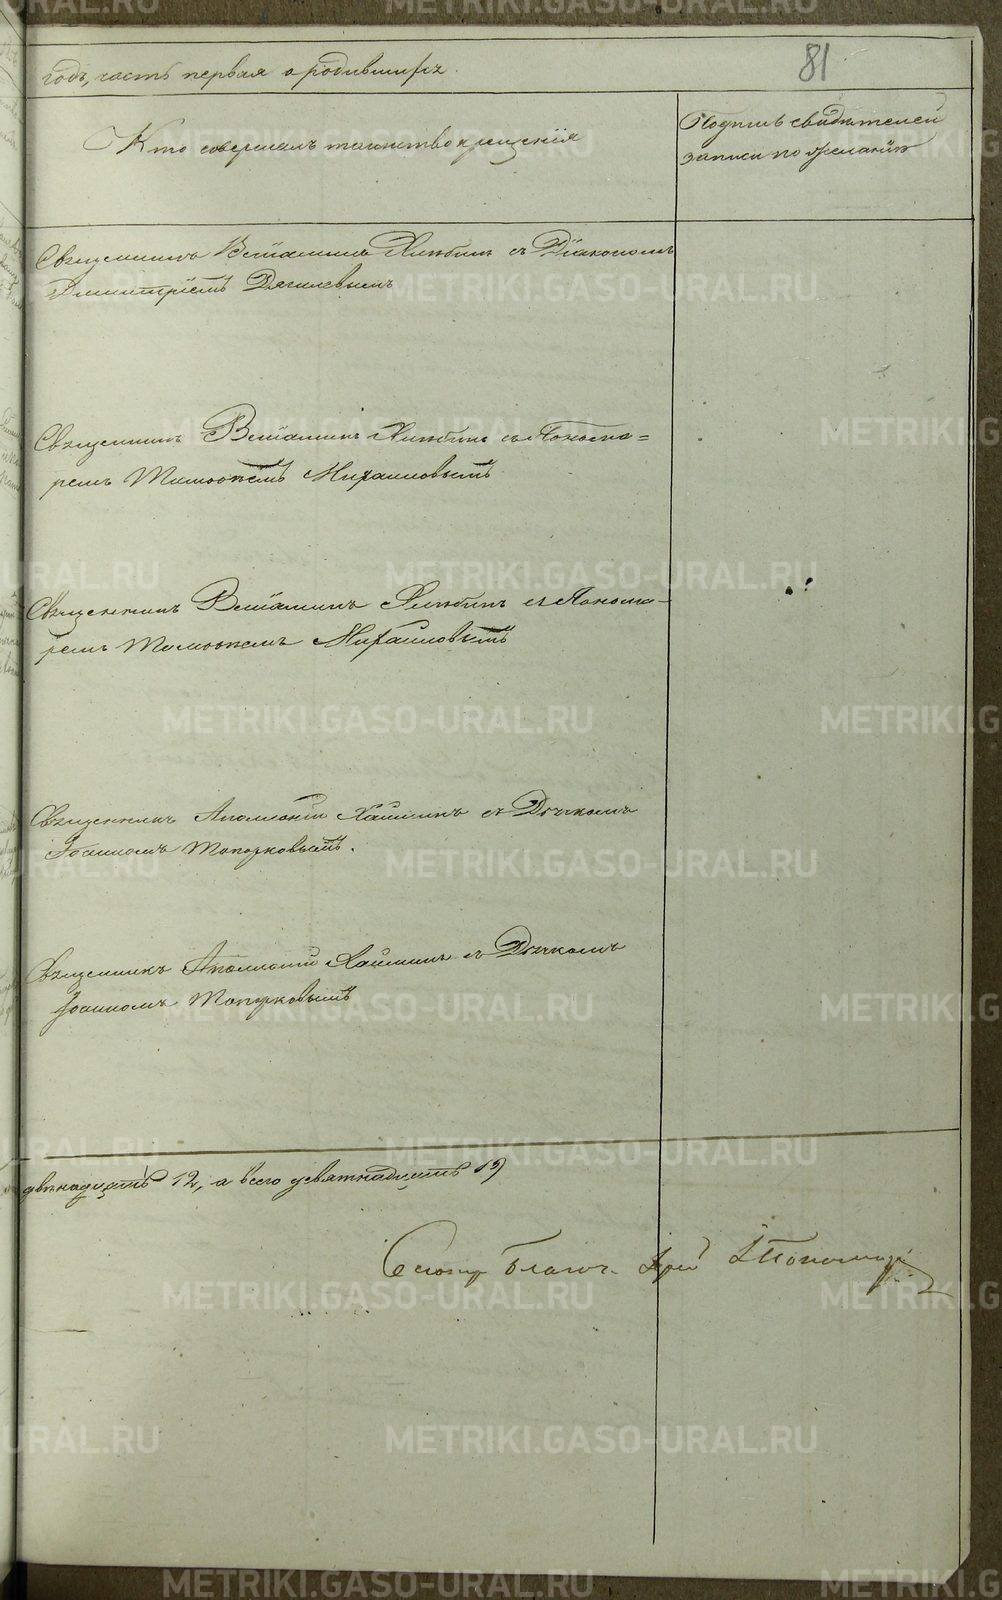 81
годъ, часть первая о родившихся.
Кто совершалъ таинство крещенія
Подпись свидѣтелей
записи по желанію
Священникъ Веніаминъ Хлѣбинъ съ Діакономъ
Димитріемъ Дягилевымъ
Священникъ Веніаминъ Хлѣбинъ съ Понома=
ремъ Тимоѳеемъ Михайловымъ
Священникъ Веніаминъ Хлѣбинъ съ Понома-
ремъ Тимоѳеемъ Михайловымъ
Священникъ Аполлоній съ Дьячкомъ
Іоанномъ Топорковымъ.
Священникъ Аполлоній съ Дьячкомъ
Іоанномъ Топорковымъ
двѣнадцать 12, а всего девятнадцать 19
Благоч. Іерей
METRIKI.GASO-URAL.RU